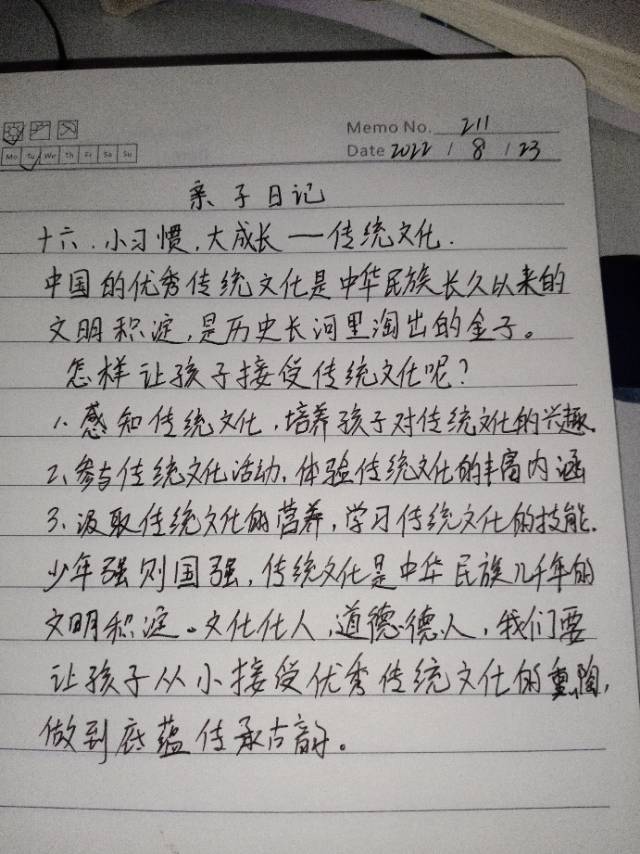 Memo No. 211
Mo Tu We Th Fr Sa Su
Date 2022 / 8 / 23
亲子日记
十六、小习惯,大成长——传统文化.
中国的优秀传统文化是中华民族长久以来的
文明积淀,是历史长河里淘出的金子。
怎样让孩子接受传统文化呢?
1、感知传统文化,培养孩子对传统文化的兴趣.
2、参与传统文化活动,体验传统文化的丰富内涵
3、汲取传统文化的营养,学习传统文化的技能.
少年强则国强,传统文化是中华民族几千年的
文明积淀。文化化人,道德德人,我们要
让孩子从小接受优秀传统文化的熏陶,
做到底蕴传承古韵。